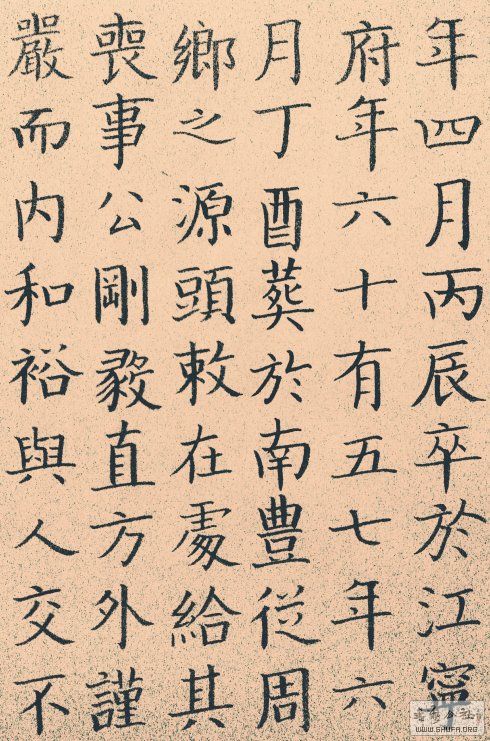 年四月丙辰卒於江寧
府年六十有五七年六
月丁酉葬於南豐從周
鄉之源頭敕在處給其
喪事公剛毅直方外謹
嚴而内和裕與人交不
WWW.SHUFA.ORG